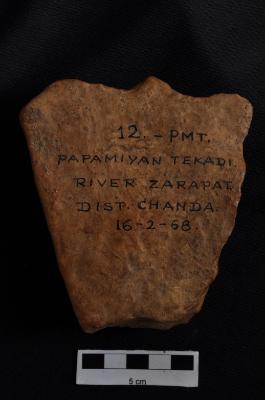 12. - PMT.
PAPAMIYAN TEKADI.
RIVER ZARAPAT.
DIST. CHANDA.
16-2-68.
5 cm